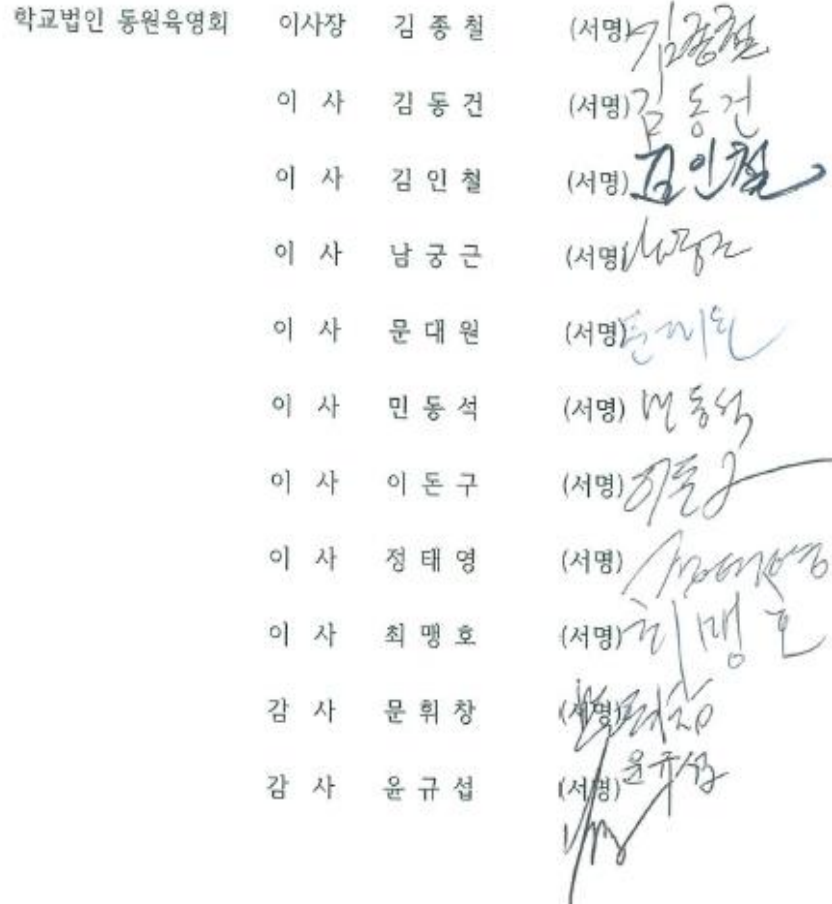 학교법인 동원육영회 이사장 김 종 철 (서명) 김종철
이 사 김 동 건 (서명) 김동건
이 사 김 인 철 (서명) 김인철
이 사 남 궁 근 (서명)
이 사 문 대 원 (서명) 문대원
이 사 민 동 석 (서명) 민동석
이 사 이 돈 구 (서명) 이돈구
이 사 정 태 영 (서명)
이 사 최 맹 호 (서명) 최맹호
감 사 문 휘 창 (서명)
감 사 윤 규 섭 (서명) 윤규섭